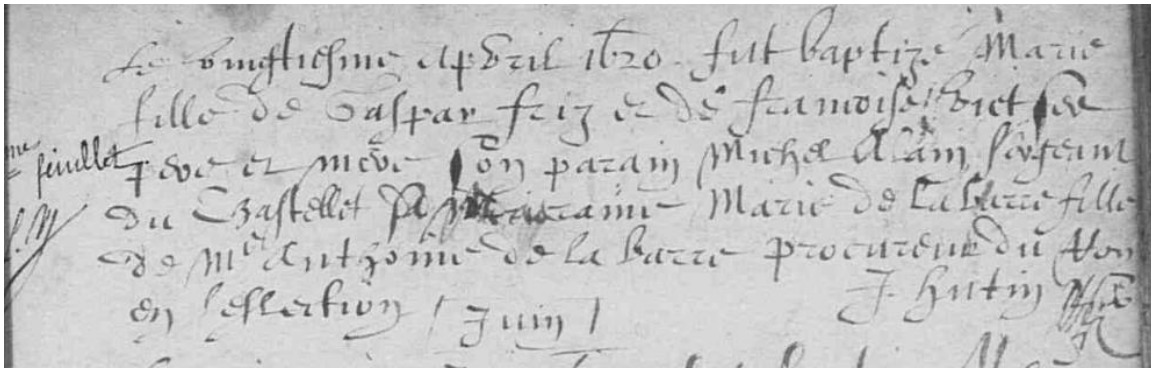 Le vingtiesme Apvril 1620. fut baptizé Marie
fille de Gaspar friz et de francoise ses
feuillet pere et mere son parain Michel Alain sergeant
du Chastellet sa maraine Marie de la barre fille
de Me Anthoine de la barre procureur du Roy
en l'eslection J. Hutin
Juin